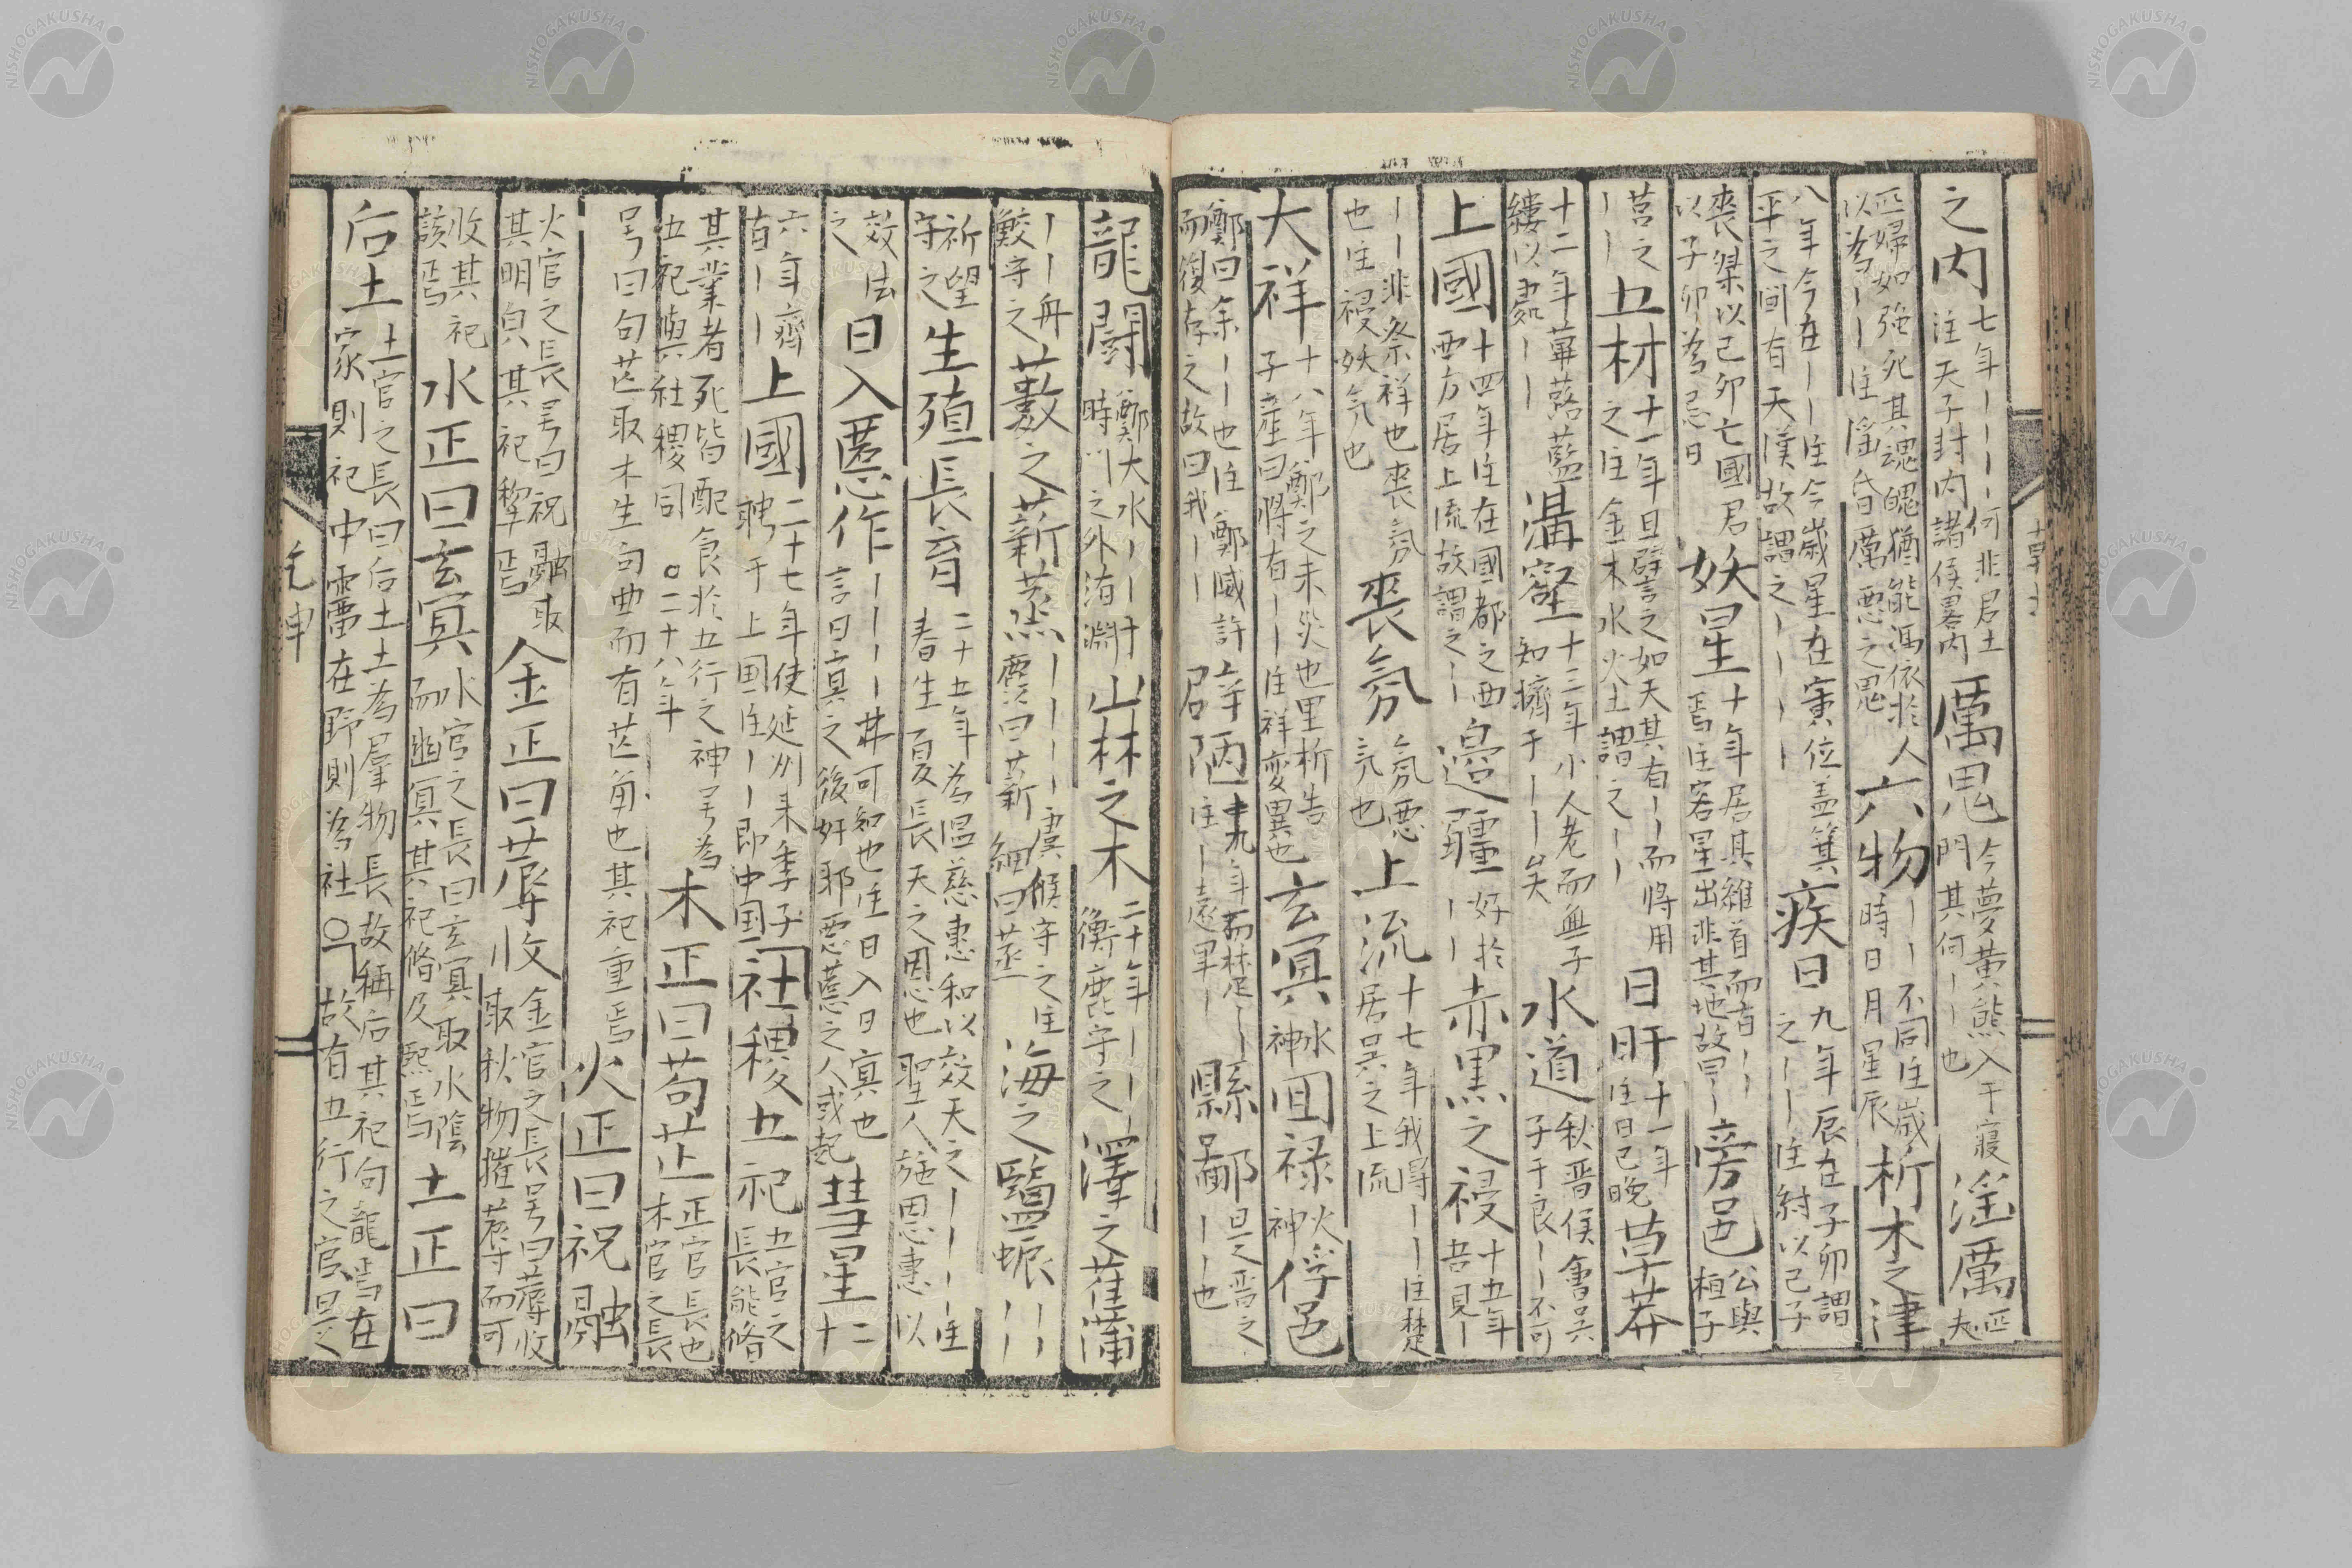 之内 七年｜｜｜何非君土 注天子封内諸侯畧内 厲鬼 今夢黄熊入于寢 門其何｜｜也 淫厲 匹夫
匹婦如强死其魂魄猶能馮依於人 以為｜｜注淫昏厲惡之鬼 六物 ｜｜不同注歳 時日月星辰 析木之津
八年今在｜｜注今歳星在寅位盖箕 平之間有天漢故謂之｜｜｜ 疾日 九年辰在子卯謂 之｜｜注紂以己子
喪桀以己卯亡國君 以子卯為忌日 妖星 十年居其維首而有｜｜ 焉注客星出非其地故曰｜ 旁邑 公與 桓子
莒之 ｜｜ 五材 十一年且譬之如天其有｜而将用 之注金木水火土謂之｜｜ 日旰 十一年 注日已晚 草莽
十二年蓽蕗藍 縷以處｜｜ 溝壑 十三年小人老而無子 知擠于｜｜矣 水道 秋晋侯會呉 子于良｜不可
上國 十四年注在國都之西 西方居上流故謂之｜ 邉疆 好於 ｜｜ 赤黒之祲 十五年 吾見｜
｜｜非祭祥也喪氛 也注祲妖氛也 喪氛 氛惡 氣也 上流 十七年我得｜｜注楚 居呉之上流
大祥 十八年鄭之未災也里析告 子産曰将有｜｜注祥変異也 玄冥 水 神 囬禄 火 神 俘邑
鄭曰余｜｜也注鄭滅許 而復存之故曰我｜｜ 辟陋 十九年而楚｜｜ 注｜遠｜ 縣鄙 是晋之 ｜｜也
龍闘 鄭大水｜｜于 時門之外洧淵 山林之木 二十年｜｜ 衡鹿守之 澤之萑蒲
｜｜舟 鮫守之 藪之薪蒸 ｜｜｜｜虞候守之注 麤曰薪細曰蒸 海之鹽蜃 ｜｜
祈望 守之 生殖長育 二十五年為温慈惠和以效天之｜｜｜｜注 春生夏長天之恩也聖人施恩惠以
效法 之 日入慝作 ｜｜｜｜弗可知也注日入日㝠也 言日㝠之後奸邪惡慝之人或起 彗星 二 十
六年齊 有｜｜ 上國 二十七年使延州来季子 聘于上国注｜即中国 社稷五祀 五官之 長能脩
其業者死皆配食於五行之神号為 五祀與社稷同○二十八年 木正曰苟芷 正官長也 木官之長
号曰句芒取木生句曲而有芒角也其祀重焉 火正曰祝融
火官之長号曰祝融取 其明皃其祀犂焉 金正曰蓐收 金官之長号曰蓐收 取秋物摧蓐而可
收其祀 該焉 水正曰玄冥 水官之長曰玄冥取水陰 而幽冥其祀脩及熙焉 土正曰
后土 土官之長曰后土土為羣物長故稱后其祀句龍焉在 家則祀中霤在野則為社○故有五行之官是之